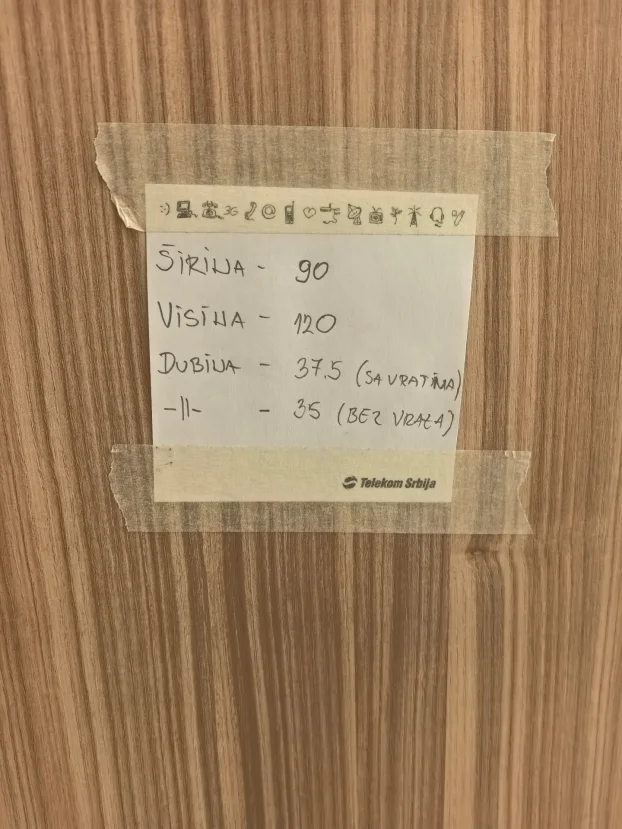 :) 3G @
ŠIRINA - 90
VISINA - 120
DUBINA - 37.5 (SA VRATIMA)
-||- - 35 (BEZ VRATA)
Telekom Srbija